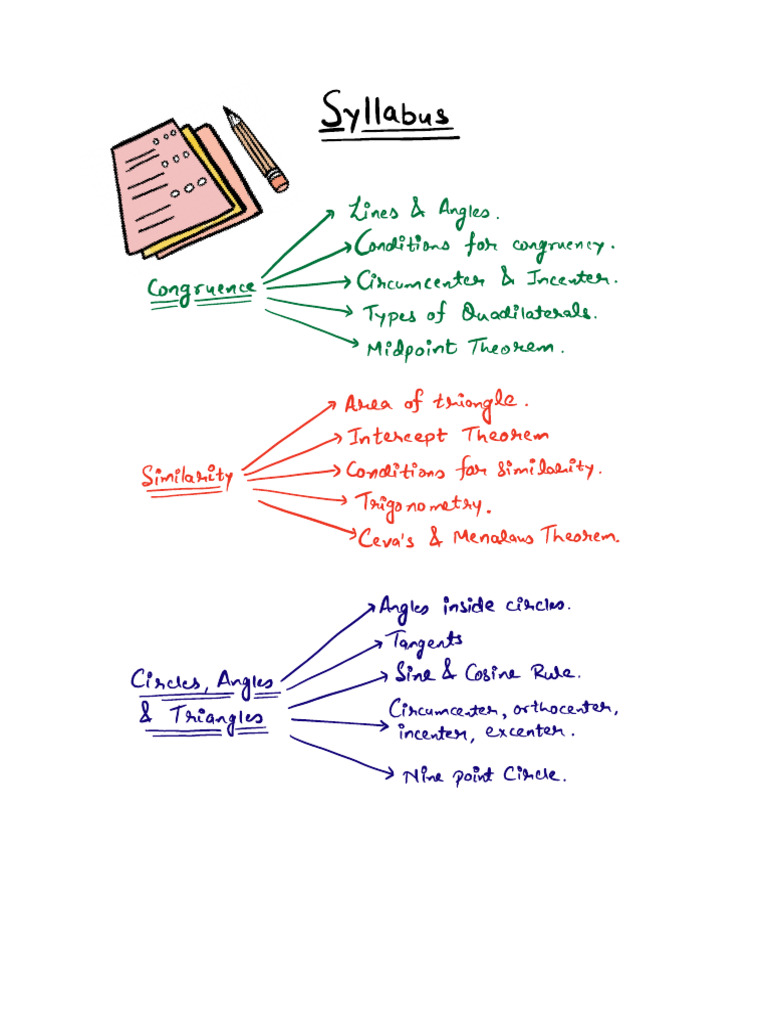 Syllabus
Lines & Angles.
Conditions for congruency.
Congruence
Circumcenter & Incenter.
Types of Quadilaterals.
Midpoint Theorem.
Area of triangle.
Intercept Theorem
Similarity
Conditions for similarity.
Trigonometry.
Ceva's & Menalaus Theorem.
Angles inside circles.
Tangents
Circles, Angles
& Triangles
Sine & Cosine Rule.
Circumcenter, orthocenter,
incenter, excenter.
Nine point Circle.